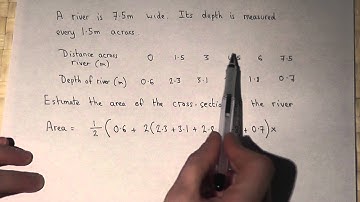 A river is 7.5m wide. Its depth is measured
every 1.5m across.
Distance across 0 1.5 3 6 7.5
river (m)
Depth of river (m) 0.6 2.3 3.1 1.8 0.7
Estimate the area of the cross-section the river
Area = 1/2 (0.6 + 2(2.3+3.1+2.8 + 0.7) x